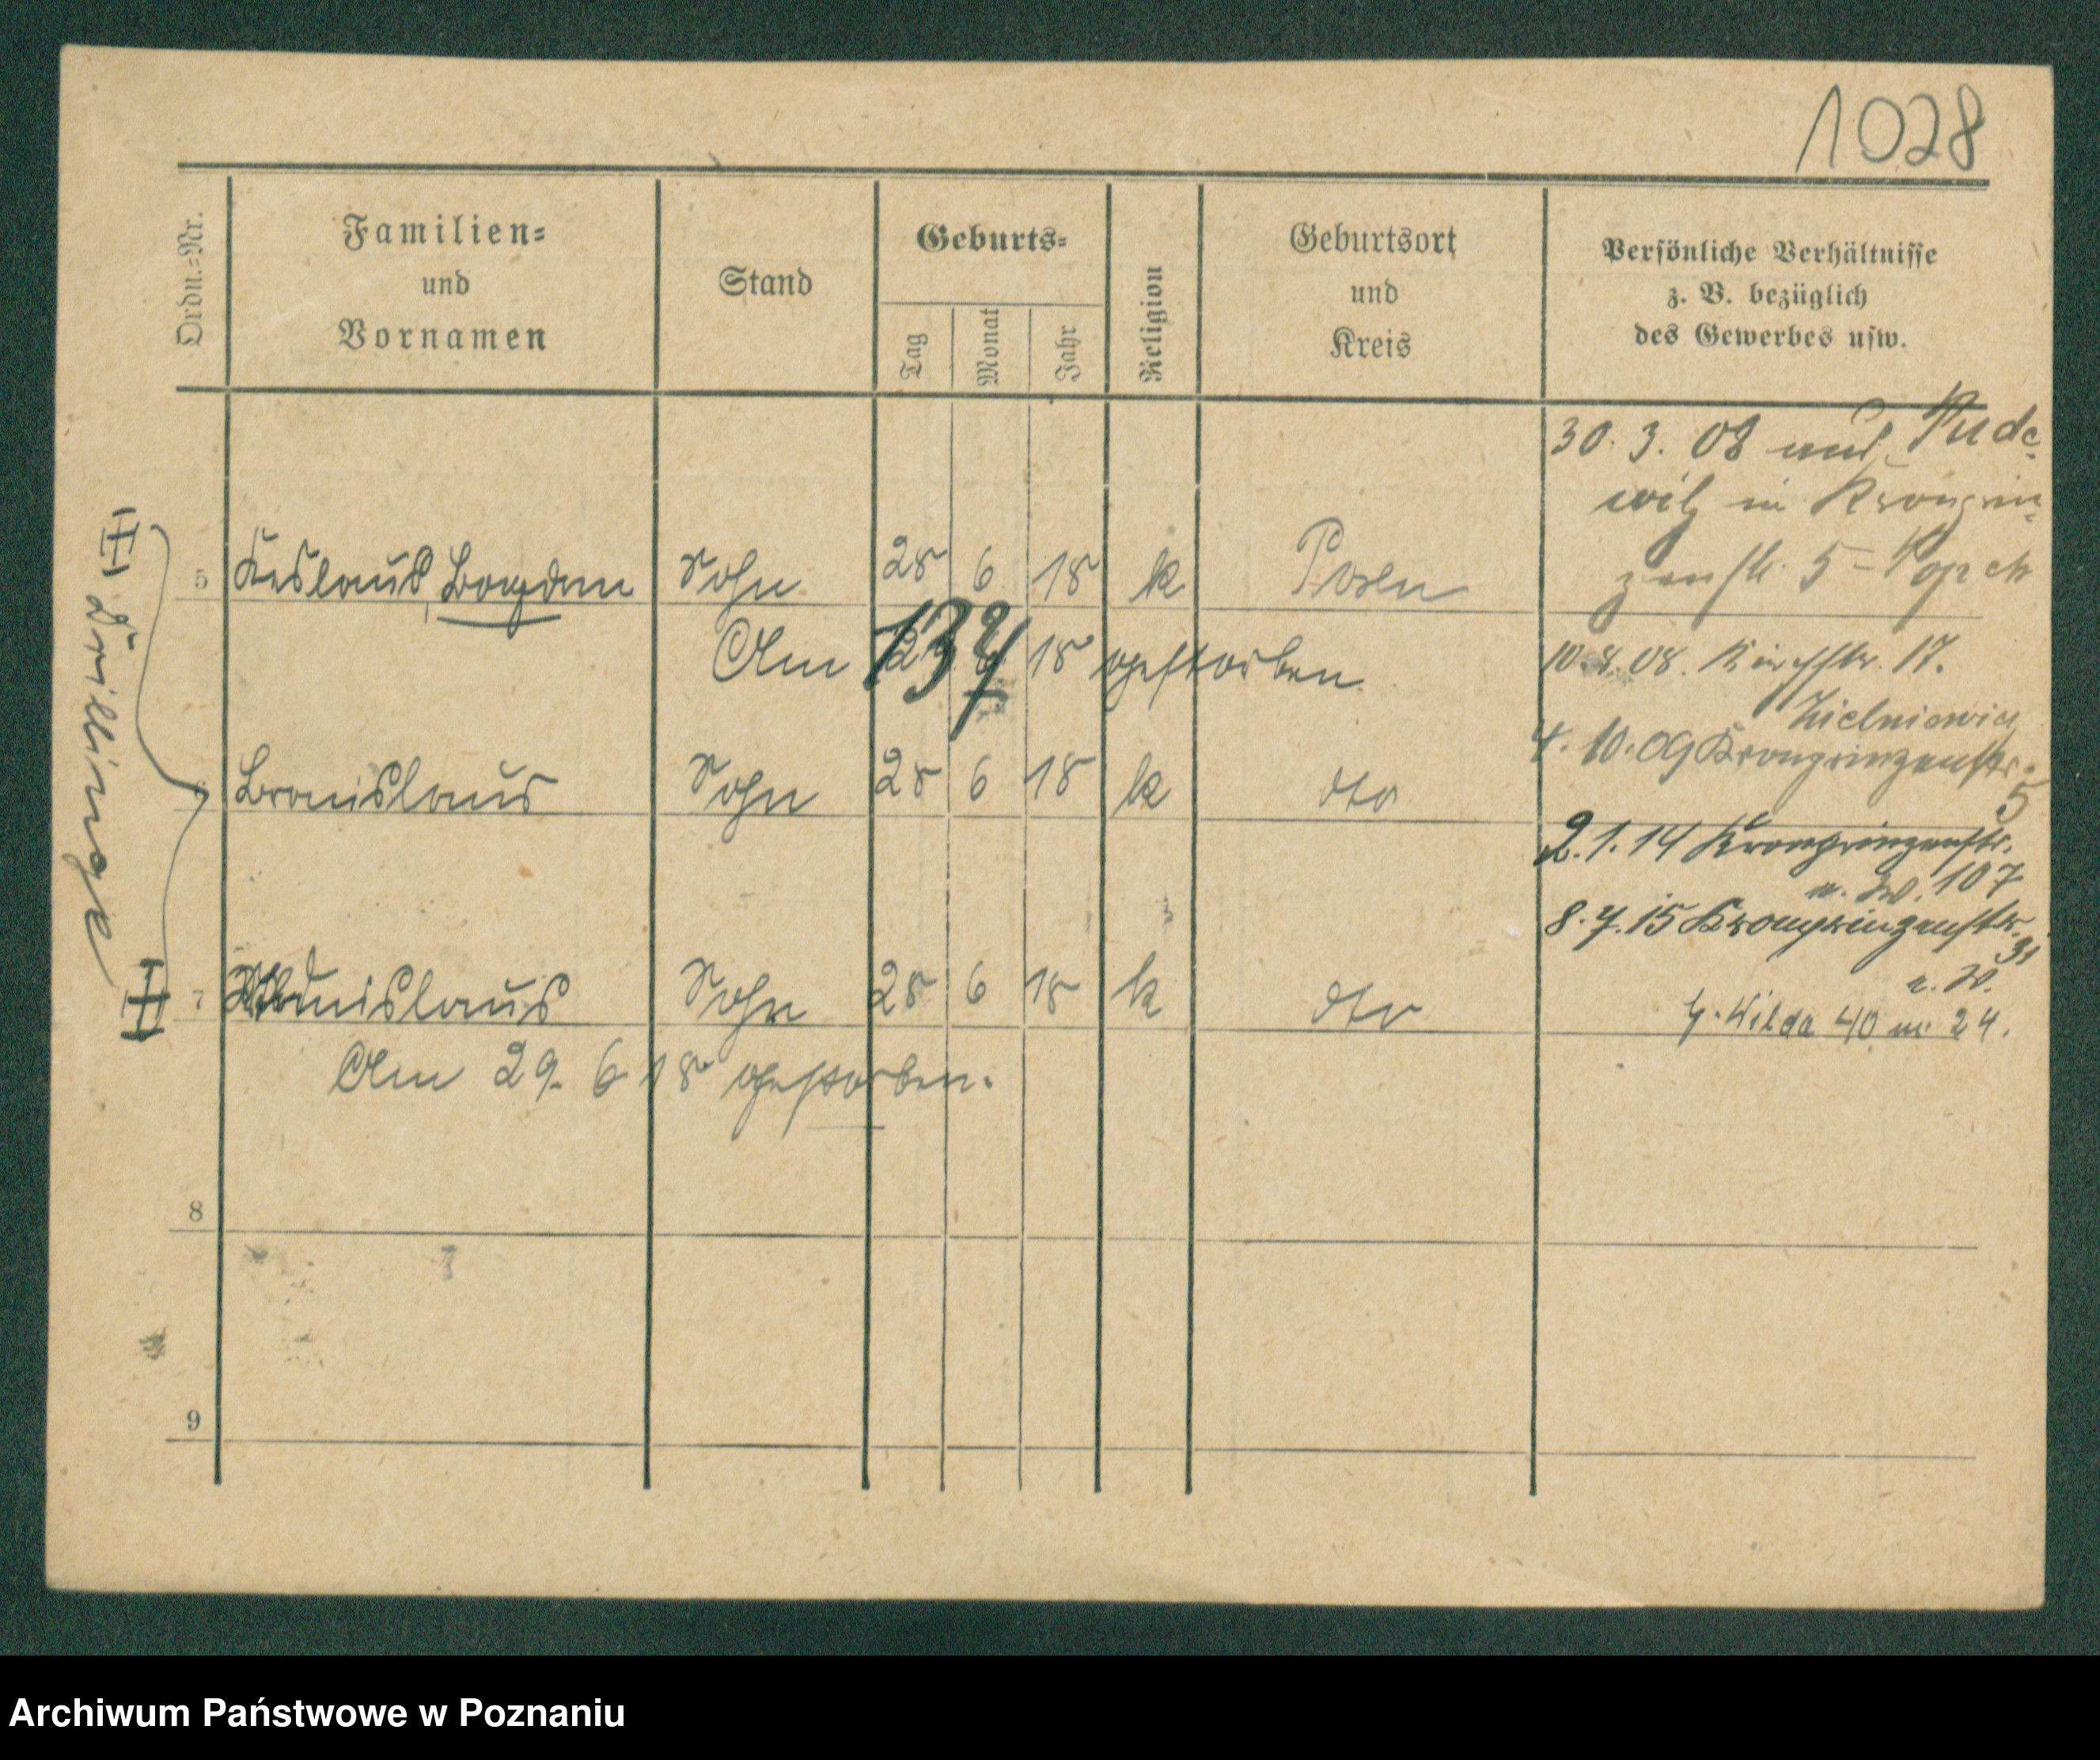 1028
Ordn.=Nr.
Familien=
und
Vornamen
Stand
Geburts=
Tag
Monat
Jahr
Religion
Geburtsort
und
Kreis
Persönliche Verhältnisse
z. B. bezüglich
des Gewerbes usw.
30. 3. 08 aus Pude-
witz in Kronprin-
zenstr. 5 -
Drillinge
5 Bogdan Sohn 28 6 18 k Posen
Am 18 gestorben
134
10. 08. 17.
4. 10. 09 Kronprinzenstr.
5
6 Bronislaus Sohn 28 6 18 k dto
2. 1. 14 Kronprinzenstr.
107
8. 7. 15 Kronprinzenstr.
31
7 Sohn 28 6 18 k dto
Wilda 40 24.
Am 29. 6 18 gestorben.
8
9
Archiwum Państwowe w Poznaniu